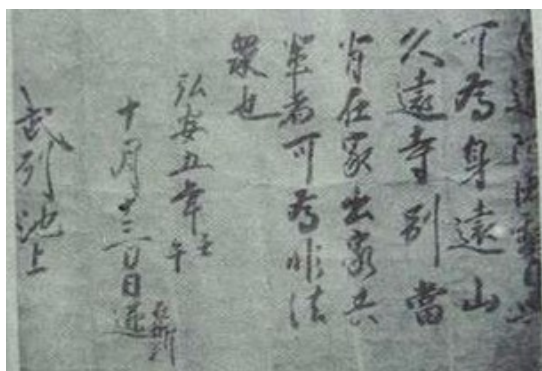 可為身遠山
久遠寺別當
背在家出家共
輩者可為非法
衆也
弘安五年壬午
十月十三日日蓮在御判
武州池上